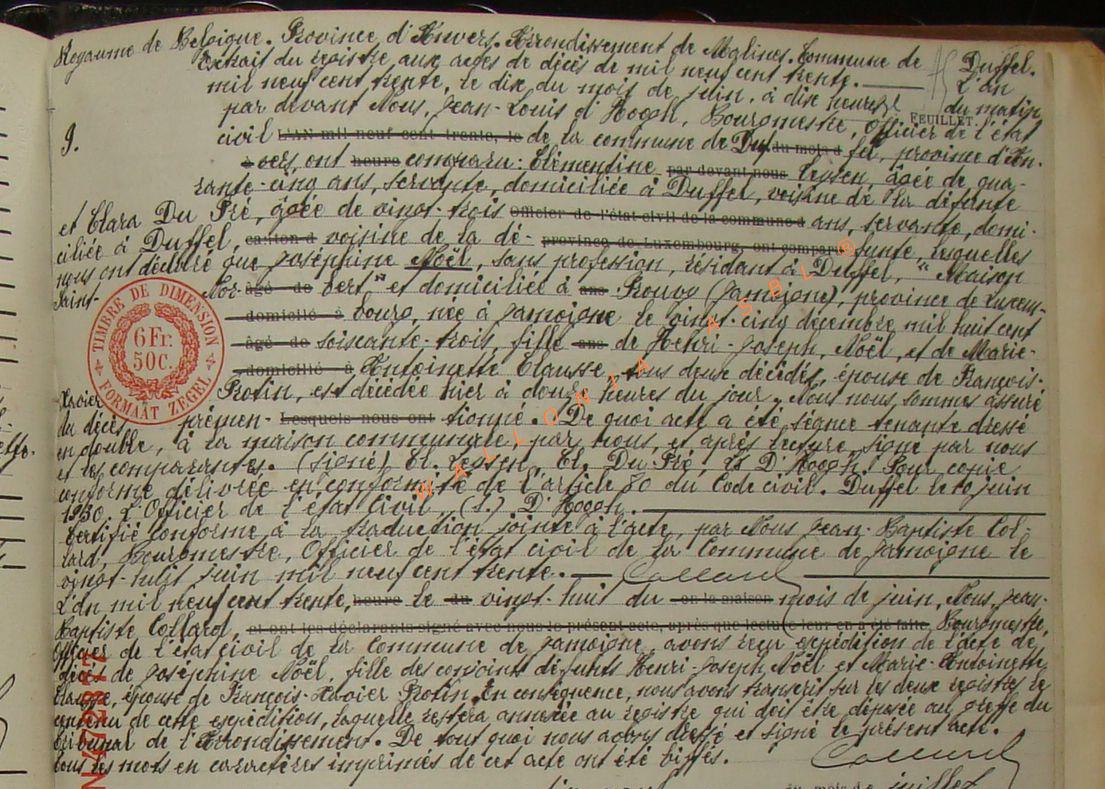 Royaume de Belgique. Province d'Anvers. Arrondissement de Malines. Commune de Duffel.
Extrait du registre aux actes de décès de mil neuf cent trente. L'an
mil neuf cent trente, le dix du mois de juin, à dix heures du matin,
FEUILLET.
par devant Nous, Jean-Louis d'Hoogh, Bourgmestre, Officier de l'état
9.
civil L'AN mil neuf cent trente, le de la commune de Duf du mois d fel, province d'An-
à vers, ont heure comparu: Clémentine par devant nous Leysen, âgée de qua-
rante-cinq ans, servante, domiciliée à Duffel, voisine de la défunte
et Clara Du Pré, âgée de vingt-trois Officier de l'état civil de la commune d ans, servante, domi-
ciliée à Duffel, canton d voisine de la dé- province de Luxembourg, ont comparu funte, lesquelles
nous ont déclaré que Joséphine Noël, sans profession, résidant à Duffel, "Maison
Saint-Nor- âgé de bert" et domiciliée à ans Prouvy (Jamoigne), province de Luxem-
domicilié à bourg, née à Jamoigne le vingt-cinq décembre mil huit cent
âgé de soixante-trois, fille ans de Henri-Joseph Noël et de Marie-
domicilié à Antoinette Clausse, tous deux décédés, épouse de François-
Xavier Protin, est décédée hier à douze heures du jour. Nous nous sommes assuré
du décès prémen- Lesquels nous ont tionné. De quoi acte a été, séance tenante dressé
en double, à la maison communale par nous, et après lecture, signé par nous
et les comparantes. (signé) Cl. Leysen, Cl. Du Pré, Ls D'Hoogh. Pour copie
conforme délivrée en conformité de l'article 80 du Code civil. Duffel le 10 juin
1930. L'Officier de l'état civil (s.) D'Hoogh.
Certifié conforme à la traduction jointe à l'acte, par Nous Jean-Baptiste Col-
lard, Bourgmestre, Officier de l'état civil de la Commune de Jamoigne le
vingt-huit juin mil neuf cent trente. Collard
L'an mil neuf cent trente, heure le du vingt-huit du en la maison mois de juin, Nous, Jean-
Baptiste Collard, et ont les déclarants signé avec nous le présent acte, après que lecture leur en a été faite, Bourgmestre,
Officier de l'état civil de la Commune de Jamoigne, avons reçu expédition de l'acte de
décès de Joséphine Noël, fille des conjoints défunts Henri-Joseph Noël et Marie-Antoinette
Clausse, épouse de François-Xavier Protin. En conséquence, nous avons transcrit sur les deux registres le
contenu de cette expédition, laquelle restera annexée au registre qui doit être déposé au greffe du
tribunal de l'Arrondissement. De tout quoi nous avons dressé et signé le présent acte.
Tous les mots en caractères imprimés de cet acte ont été biffés. Collard
du mois de juillet
TIMBRE DE DIMENSION
6 Fr.
50 C.
FORMAAT ZEGEL
WALLONIA ASBL ©